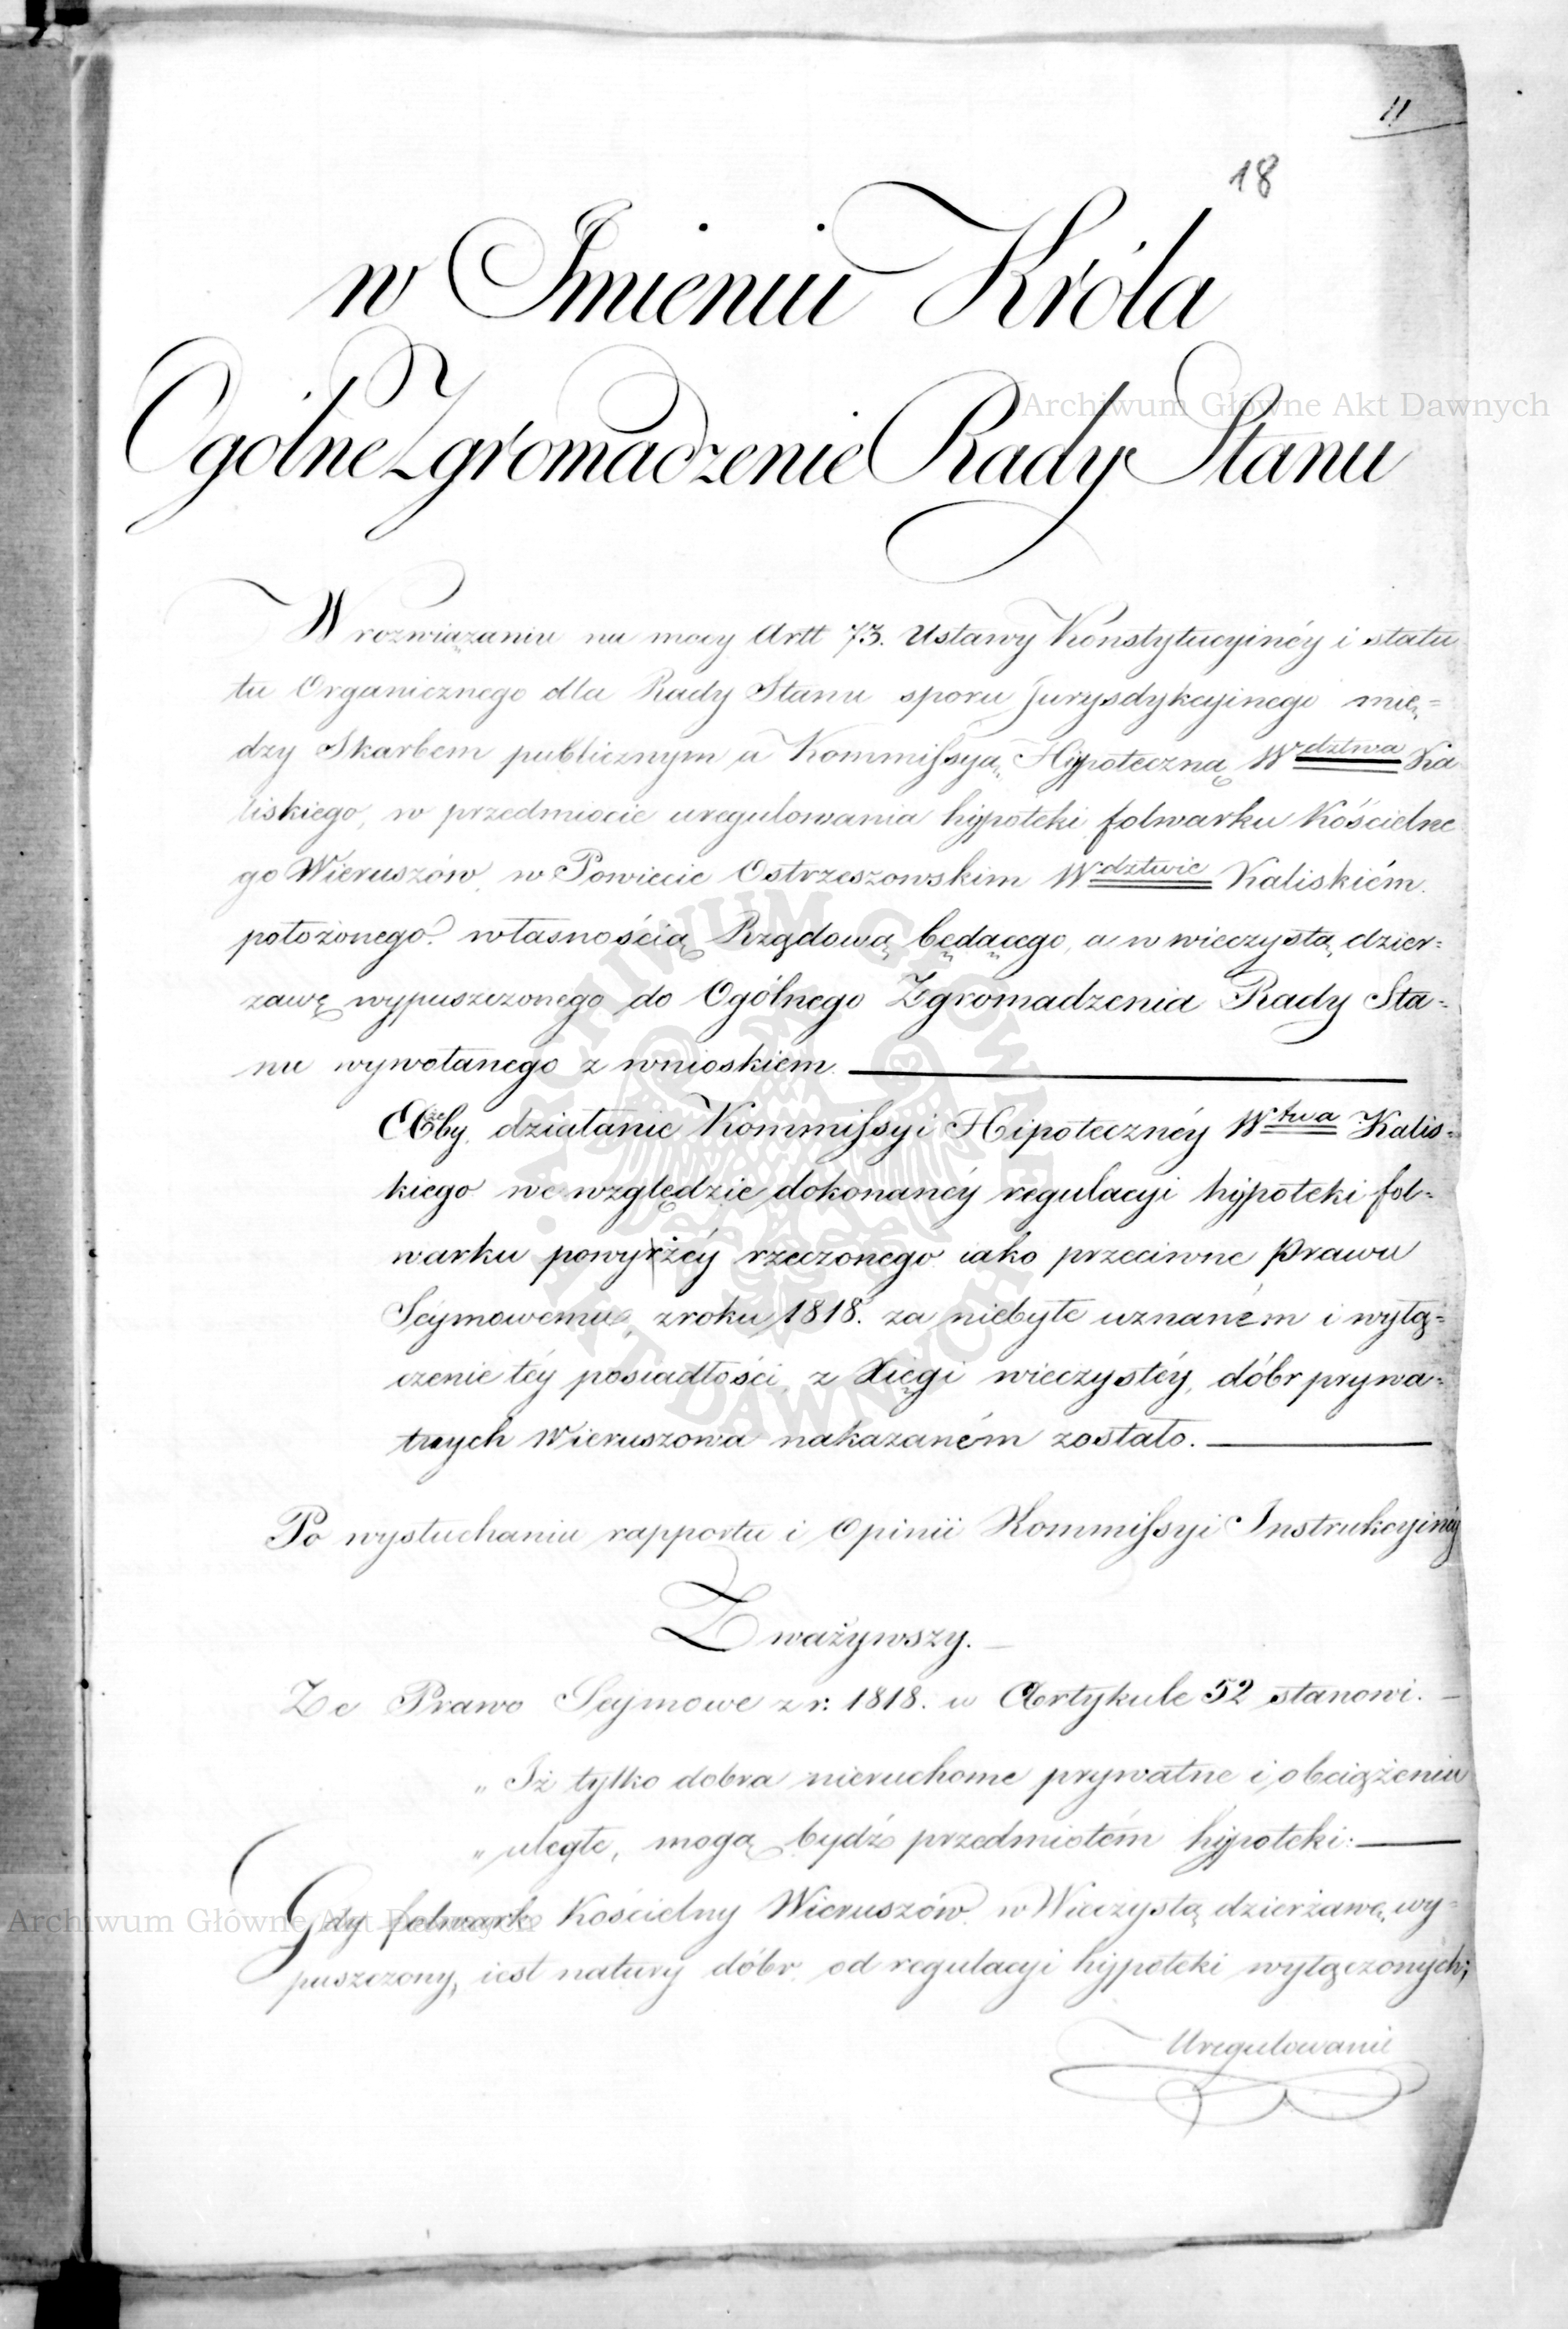 11
18
w Imieniu Króla
Ogólne Zgromadzenie Rady Stanu
W rozwiązaniu na mocy Artt 73. Ustawy Konstytucyinéy i statu
tu Organicznego dla Rady Stanu sporu Jurysdykcyinego mię=
dzy Skarbem publicznym a Kommissyą Hypoteczną Wdztwa Ka
liskiego, w przedmiocie uregulowania hypoteki folwarku Kościelne
go Wieruszów w Powiecie Ostrzeszowskim Wdztwie Kaliskiém
położonego własnością Rządową będącego, a w wieczystą dzier=
zawę wypuszczonego do Ogólnego Zgromadzenia Rady Sta=
nu wywołanego z wnioskiem.
Ażeby działanie Kommissyi Hipotecznéy Wtwa Kalis=
kiego we względzie dokonanéy regulacyi hypoteki fol=
warku powyżéy rzeczonego iako przeciwne Prawu
Seymowemu z roku 1818. za niebyłe uznaném i wyłą=
czenie téy posiadłości z Xięgi wieczystéy, dóbr prywa=
tnych Wieruszowa nakazaném zostało.
Po wysłuchaniu rapportu i Opinii Kommissyi Instrukcyinéy
Zważywszy.
Ze Prawo Seymowe z r: 1818. w Artykule 52 stanowi.
„Iż tylko dobra nieruchome prywatne i obciążeniu
„uległe, mogą bydź przedmiotém hypoteki:
Gdy folwark Kościelny Wieruszów w Wieczystą dzierżawę wy=
puszczony, iest natury dóbr od regulacyi hypoteki wyłączonych;
Uregulowanie
Archiwum Główne Akt Dawnych
Archiwum Główne Akt Dawnych
ARCHIWUM GŁÓWNE AKT DAWNYCH